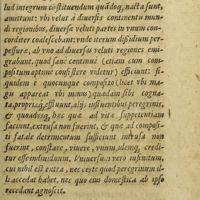 lud integrum cõstituendum quãdoq; nacta sunt,
amittunt: vbi velut à diuersis continenti mun-
di regionibus, diuersa veluti partes in vnum con-
uenire coalescebant: vnde iterum dissidium per-
pessura, ab vno ad diuersas veluti regiones emi-
grabunt. quod sanè continuè (etiam cum com-
positum optimè consistere videtur) efficiunt: si-
quidem è quocunque composito (licet vbi ma-
gis apparet vbi minus) quædam sibi cogna-
ta, propriaq; efflunt, alijs influentibus peregrinis,
& quandoq; hæc que ad vitæ suppetentiam
faciunt, extrusum fuerint, & quæ ad composi-
ti fatale detrimentum sufficient intrusa non
fuerint, constare, viuere, vnum, idemq; credi-
tur essendinandum. Vniuerso verò infinitum,
cui nihil est extra, nec certè quod peregrinum il-
li accedat habet, nec quo eius domestica ab ipso
recedant agnoscit.